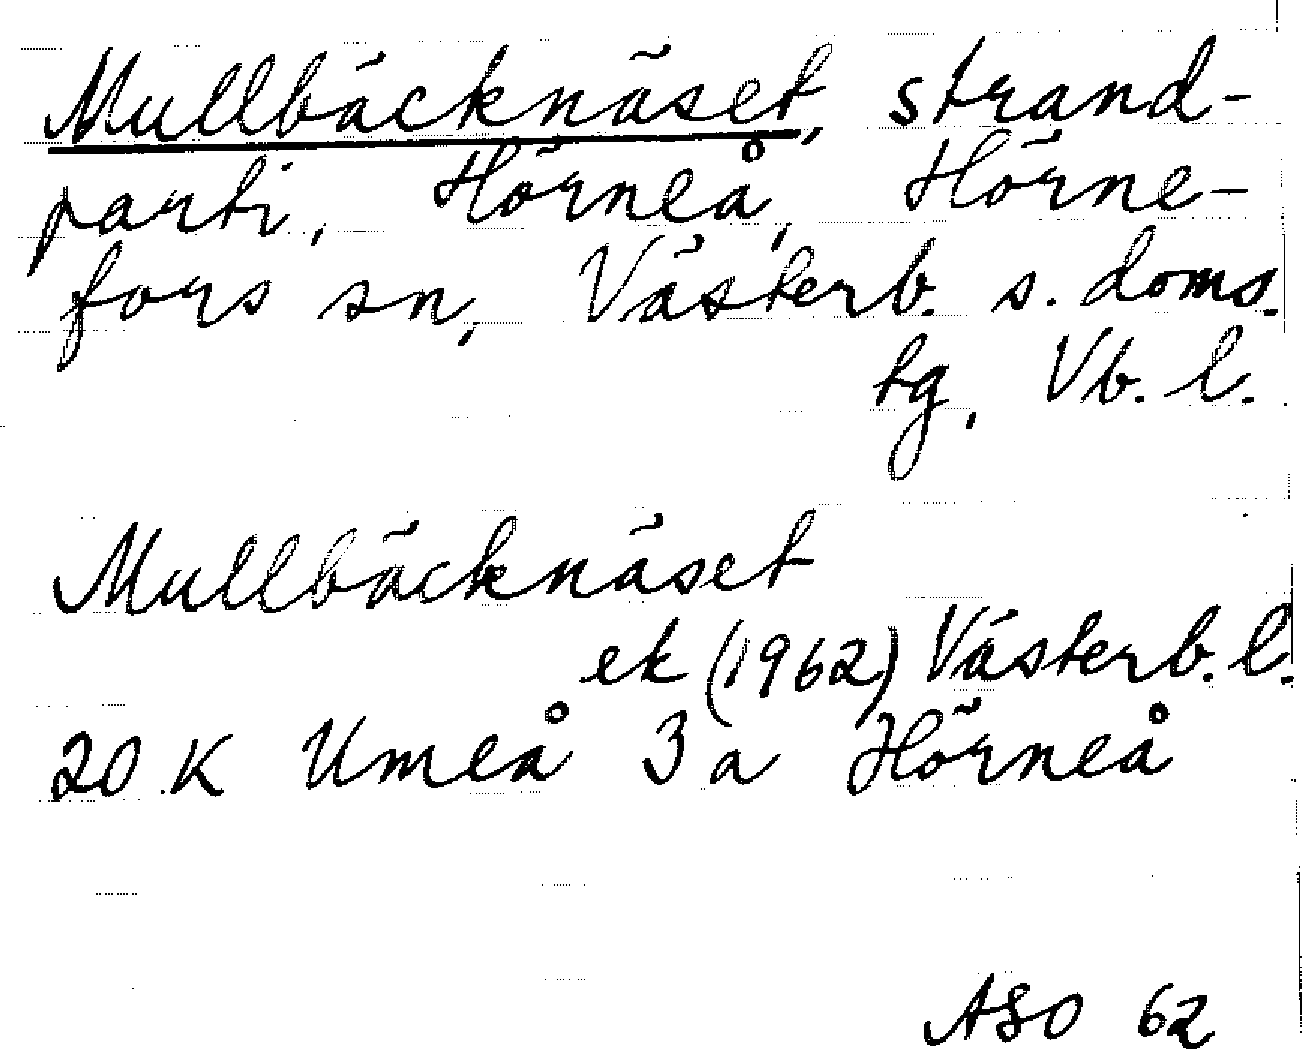 Mullbäcknäset, strand-
parti, Hörneå, Hörne-
fors sn, Västerb. s. doms.
tg, Vb. l.
Mullbäcknäset
ek (1962) Västerb. l.
20 K Umeå 3 a Hörneå
ASO 62